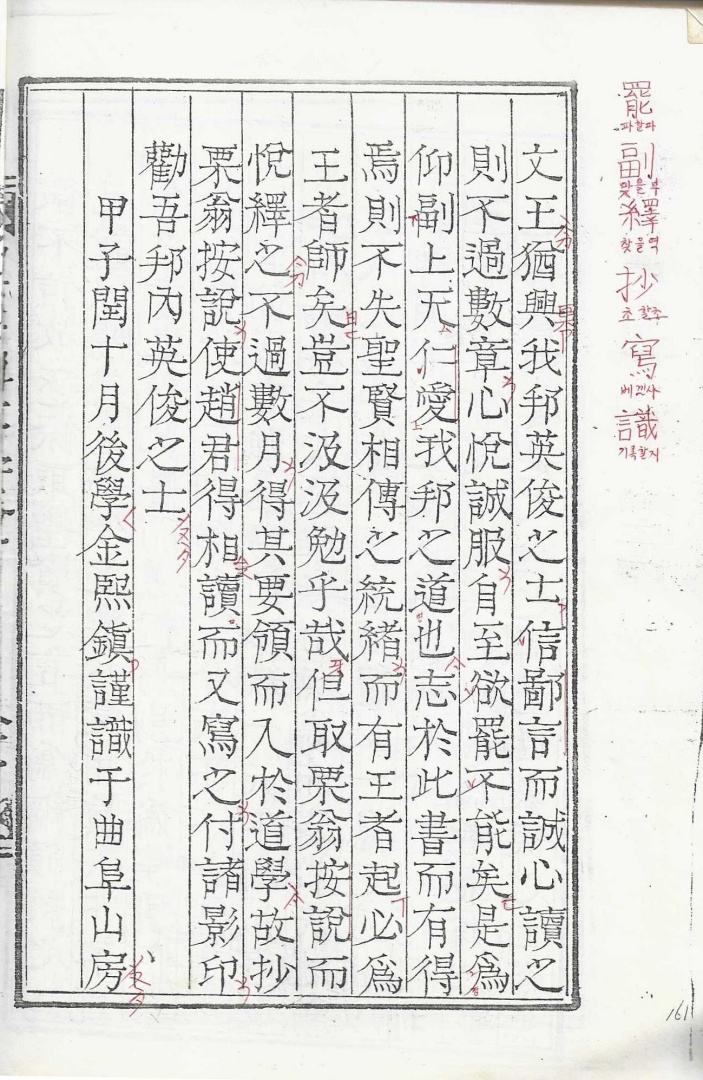 文王猶興我邦英俊之士信鄙言而誠心讀之
則不過數章心悅誠服自至欲罷不能矣是爲
仰副上天仁愛我邦之道也志於此書而有得
焉則不失聖賢相傳之統緒而有王者起必爲
王者師矣豈不汲汲勉乎哉但取栗翁按說而
悅繹之不過數月得其要領而入於道學故抄
栗翁按說使趙君得相讀而又寫之付諸影印
勸吾邦內英俊之士
甲子閏十月後學金熙鎭謹識于曲阜山房
罷
파할파
副
맞을부
繹
찾을역
抄
초할초
寫
베낄사
識
기록할지
161